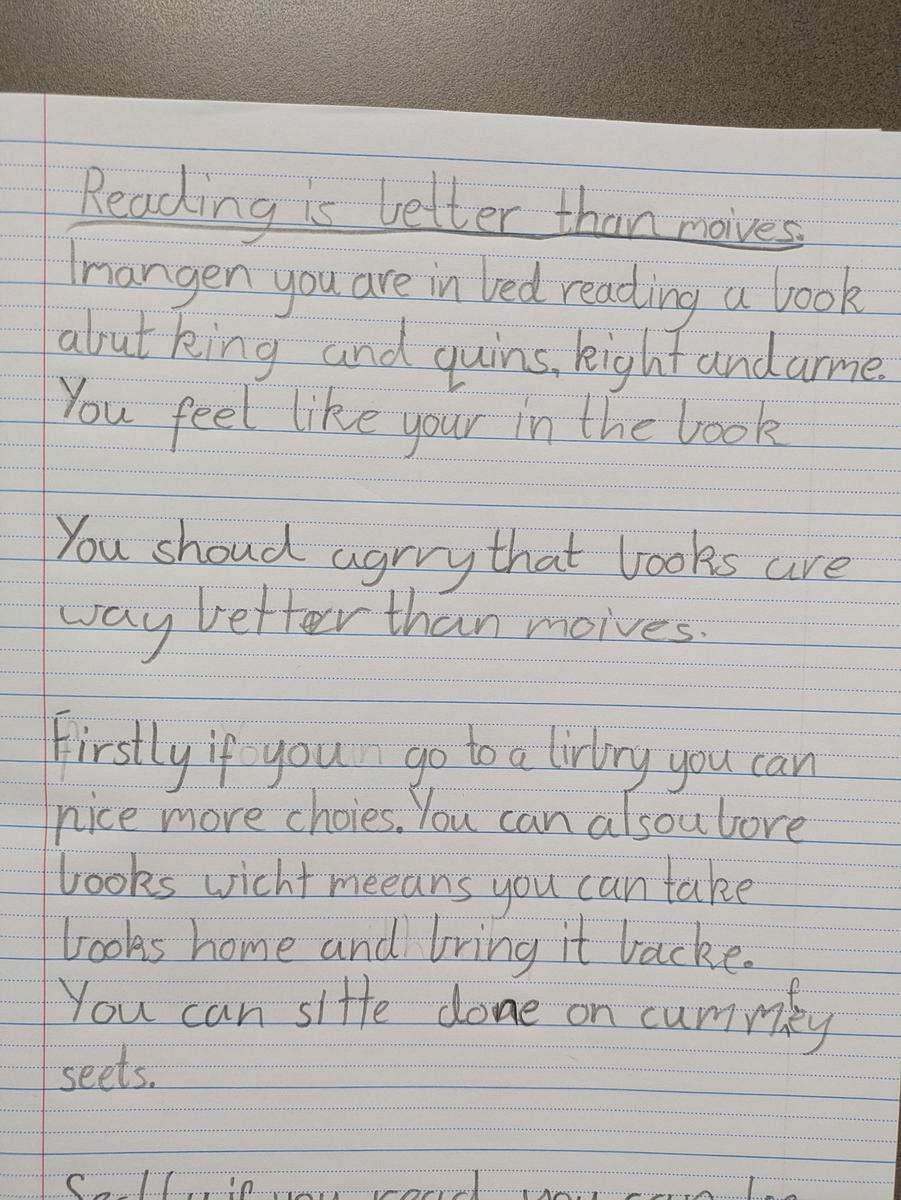 Reading is better than moives.
Imangen you are in bed reading a book
abut king and quins, kight and arme.
You feel like your in the book
You shoud agrry that books are
way better than moives.
Firstly if you go to a lirbry you can
pice more choies. You can alsou bore
books wicht meeans you can take
books home and bring it backe.
You can sitte done on cummfey
seets.
if you read you can be